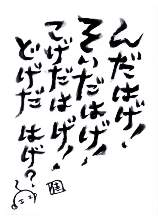 んだはげ!
そいだはげ!
こげだはげ!
どげだ はげ?